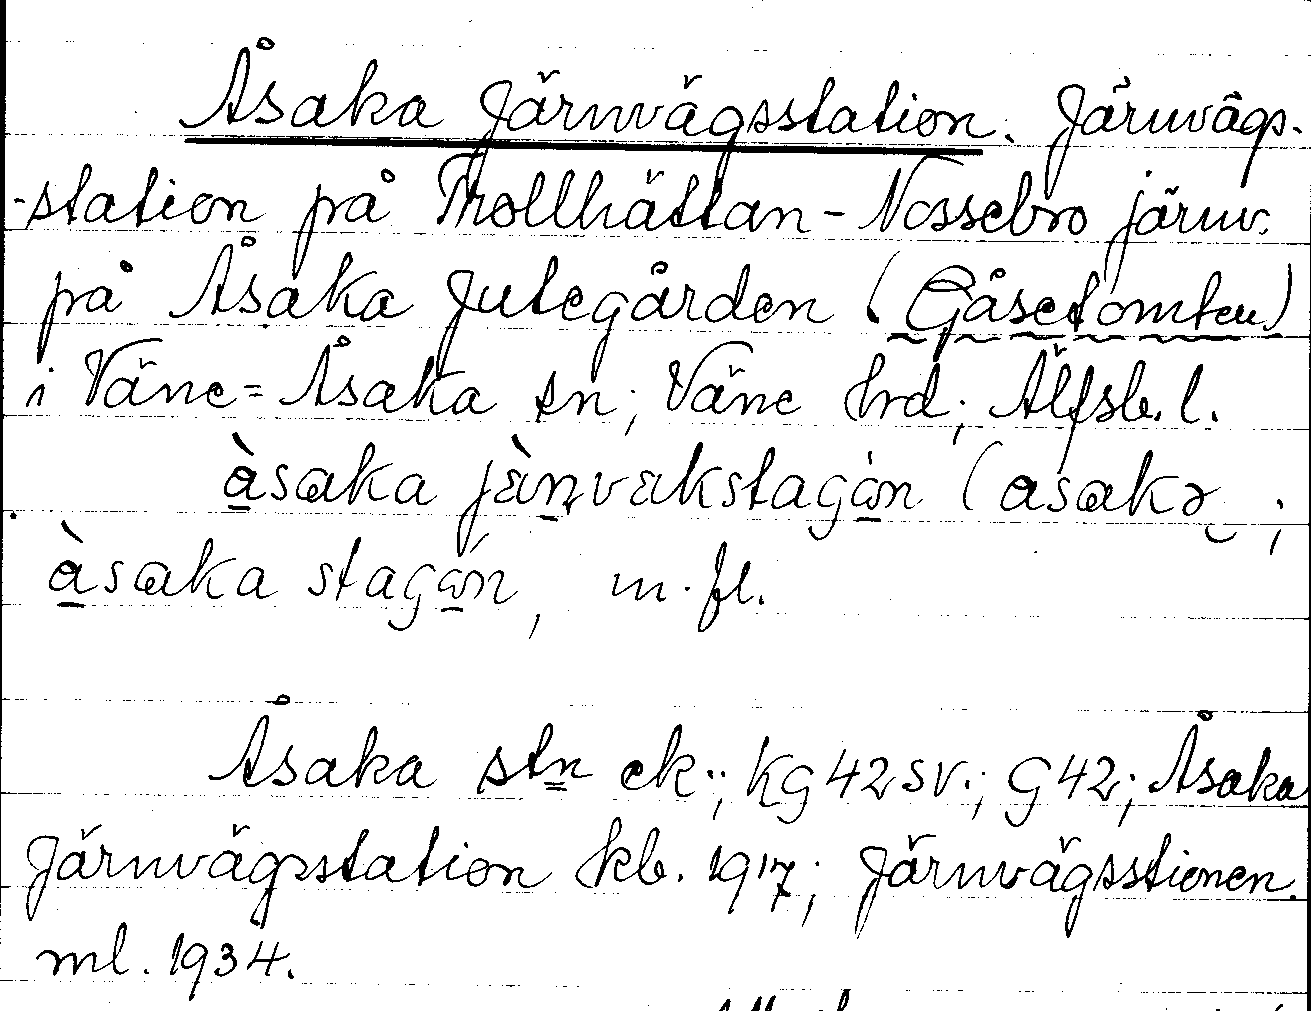 Åsaka Järnvägsstation. Järnvägs-
-station på Trollhättan-Nossebro järnv.
på Åsaka Jutegården (Gåsetomten)
i Väne=Åsaka sn; Väne hrd; Älfsb. l.
àsaka jànvakstagón (asakə ;
àsaka stagón, m. fl.
Åsaka stn ek.; KG42SV.; G42; Åsaka
Järnvägsstation kb. 1917; Järnvägsstionen
ml. 1934.